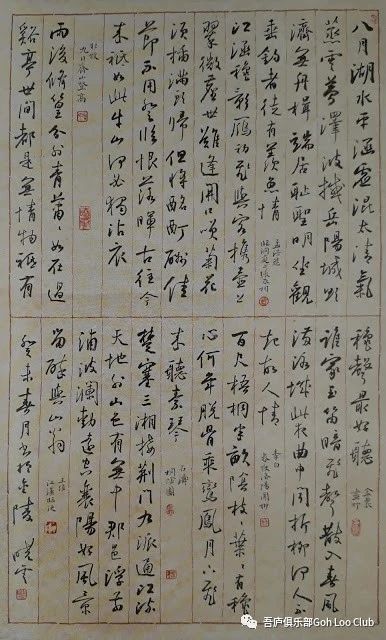 八月湖水平涵虚混太清氣
蒸雲夢澤波撼岳陽城欲
濟無舟楫端居耻聖明坐觀
垂釣者徒有羡魚情
孟浩然
臨洞庭上張丞相
江涵秋影雁初飛與客携壺上
翠微塵世難逢開口笑菊花
須插滿頭歸但將酩酊酬佳
節不用登臨恨落暉古往今
來祇如此牛山何必獨沾衣
杜牧
九日齊山登高
雨後修篁分外青蕭蕭如在過
谿亭世間都是無情物祇有
秋聲最好聽
金農
畫竹
誰家玉笛暗飛聲散入春風
滿洛城此夜曲中聞折柳何人不
起故人情
李白
春夜洛城聞笛
百尺梧桐半畝陰枝枝葉葉有秋
心何年脱骨乘鸞鳳月下飛
來聽素琴
石濤
桐陰圖
楚塞三湘接荆門九派通江流
天地外山色有無中郡邑浮前
浦波瀾動遠空襄陽好風景
留醉與山翁
王維
江漢臨泛
癸未春月書於金陵 曉雲
吾庐俱乐部Goh Loo Club